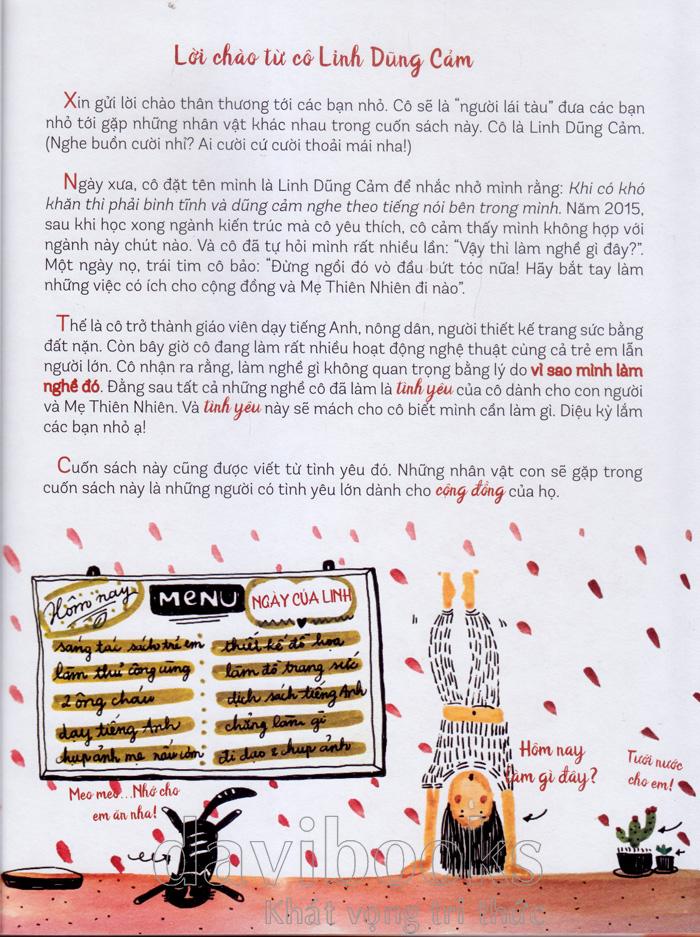 Lời chào từ cô Linh Dũng Cảm
Xin gửi lời chào thân thương tới các bạn nhỏ. Cô sẽ là “người lái tàu” đưa các bạn
nhỏ tới gặp những nhân vật khác nhau trong cuốn sách này. Cô là Linh Dũng Cảm.
(Nghe buồn cười nhỉ? Ai cười cứ cười thoải mái nha!)
Ngày xưa, cô đặt tên mình là Linh Dũng Cảm để nhắc nhở mình rằng: Khi có khó
khăn thì phải bình tĩnh và dũng cảm nghe theo tiếng nói bên trong mình. Năm 2015,
sau khi học xong ngành kiến trúc mà cô yêu thích, cô cảm thấy mình không hợp với
ngành này chút nào. Và cô đã tự hỏi mình rất nhiều lần: “Vậy thì làm nghề gì đây?”.
Một ngày nọ, trái tim cô bảo: “Đừng ngồi đó vò đầu bứt tóc nữa! Hãy bắt tay làm
những việc có ích cho cộng đồng và Mẹ Thiên Nhiên đi nào”.
Thế là cô trở thành giáo viên dạy tiếng Anh, nông dân, người thiết kế trang sức bằng
đất nặn. Còn bây giờ cô đang làm rất nhiều hoạt động nghệ thuật cùng cả trẻ em lẫn
người lớn. Cô nhận ra rằng, làm nghề gì không quan trọng bằng lý do vì sao mình làm
nghề đó. Đằng sau tất cả những nghề cô đã làm là tình yêu của cô dành cho con người
và Mẹ Thiên Nhiên. Và tình yêu này sẽ mách cho cô biết mình cần làm gì. Diệu kỳ lắm
các bạn nhỏ ạ!
Cuốn sách này cũng được viết từ tình yêu đó. Những nhân vật con sẽ gặp trong
cuốn sách này là những người có tình yêu lớn dành cho cộng đồng của họ.
Hôm nay MENU NGÀY CỦA LINH
sáng tác sách trẻ em thiết kế đồ họa
làm thủ công cùng làm đồ trang sức
2 ông cháu dịch sách tiếng Anh
dạy tiếng Anh chẳng làm gì
chụp ảnh mẹ nấu cơm đi dạo & chụp ảnh
Hôm nay
làm gì đây?
Tưới nước
cho em!
Meo meo...Nhớ cho
em ăn nha!
davibooks
Khát vọng tri thức